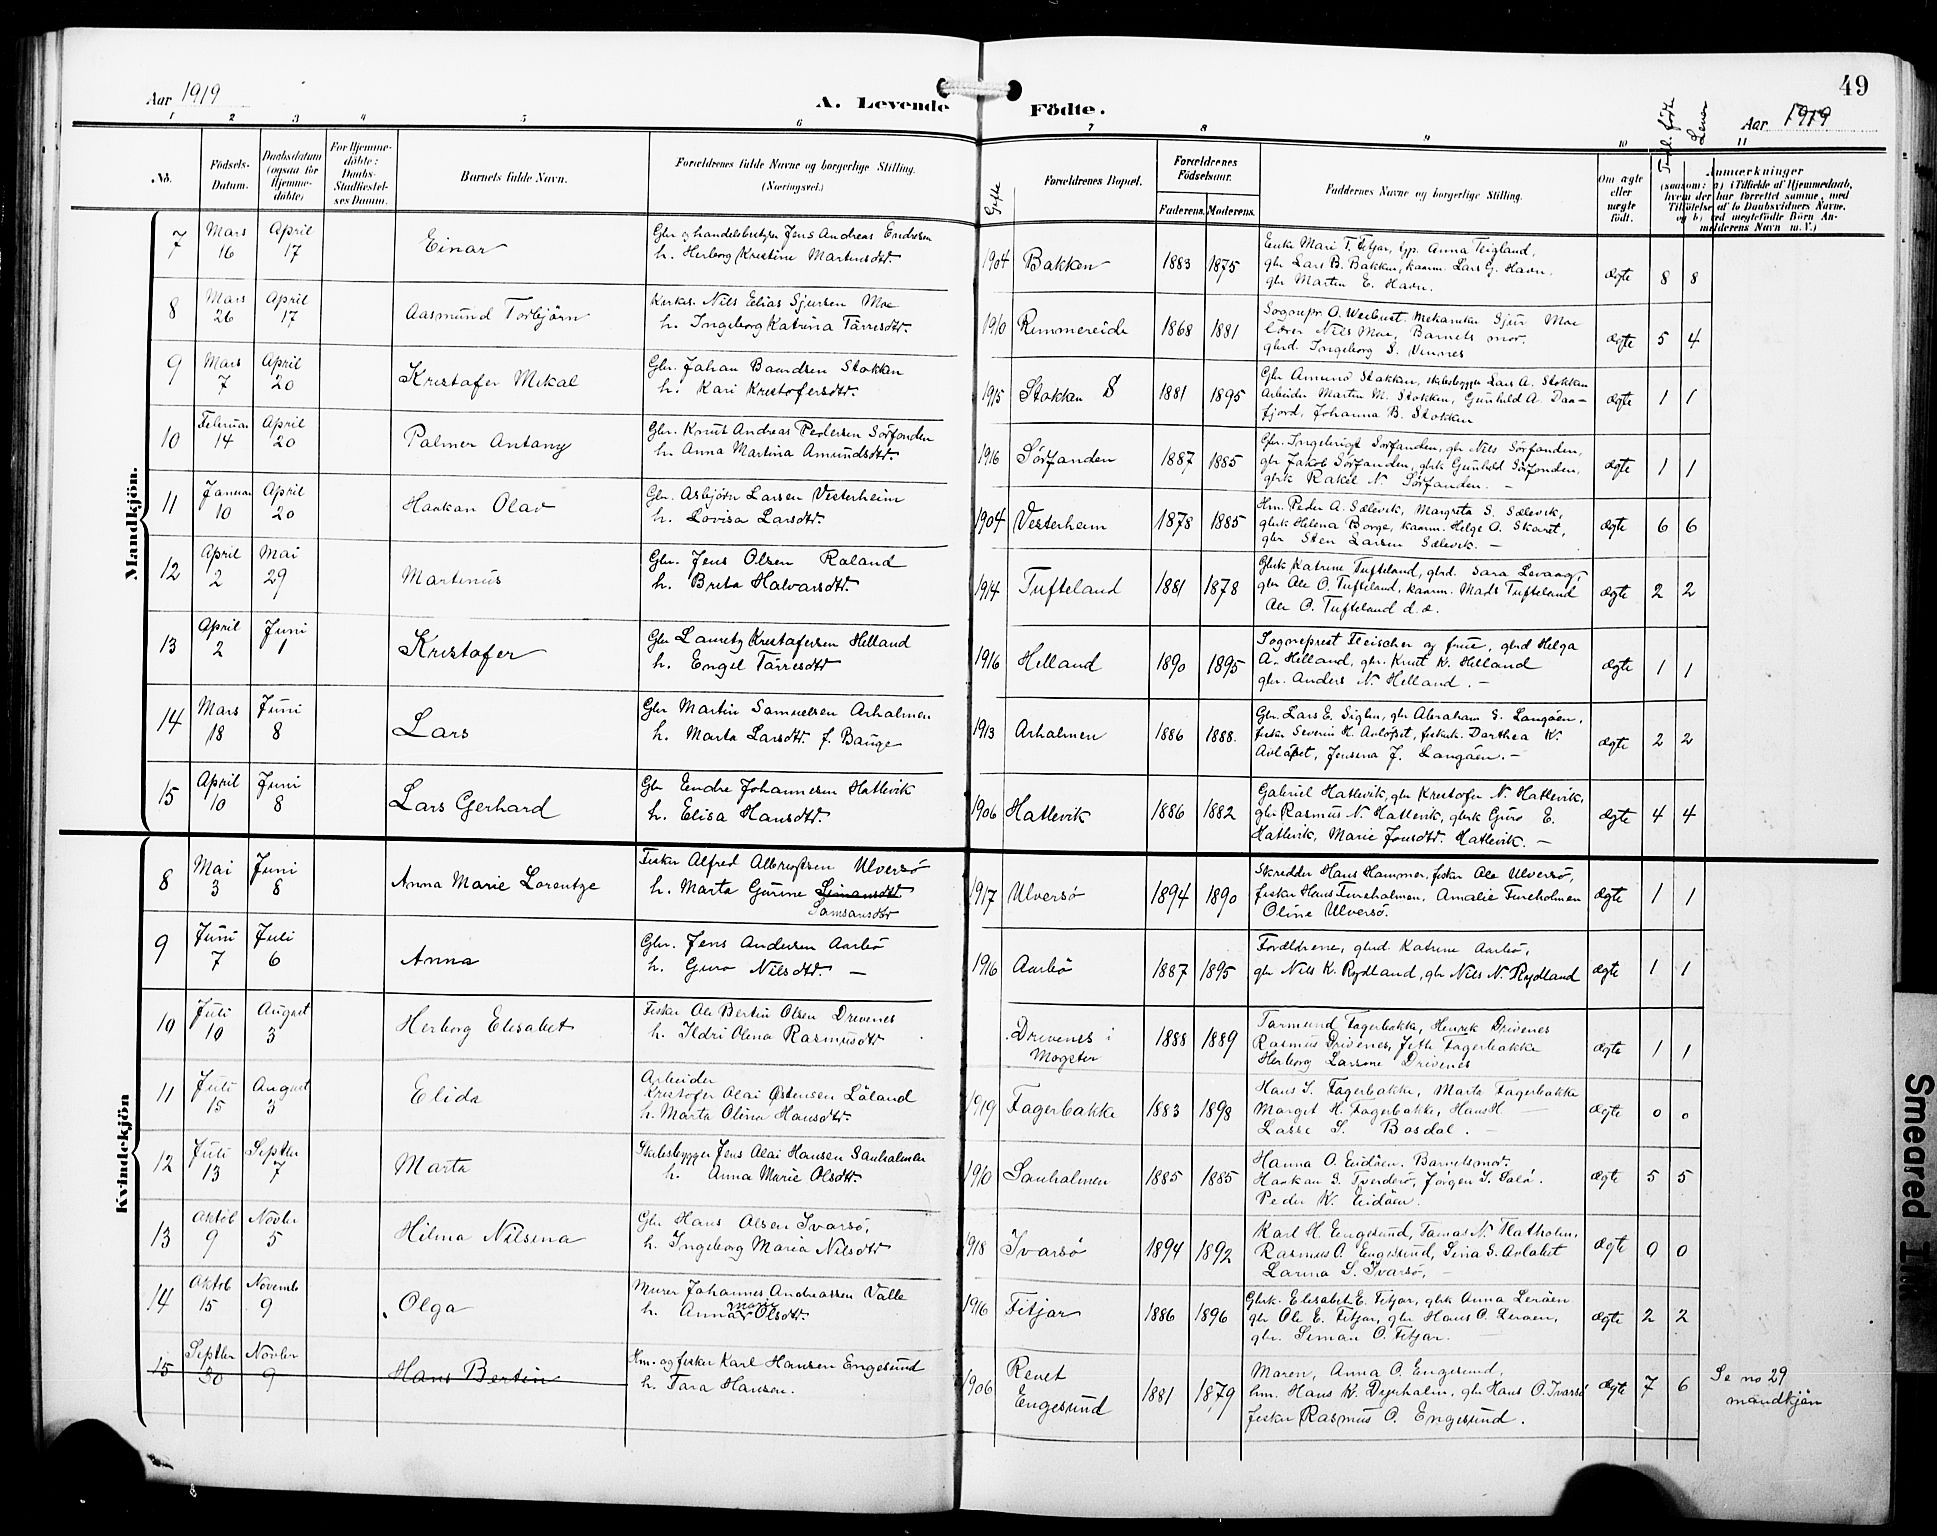 49
Aar 1919
A. Levende Födte.
Aar 1919
1 2 3 4 5 6 7 8 9 10 11
No.
Födsels-
Datum.
Daabsdatum
(ogsaa for
Hjemme-
döbte)
For Hjemme-
döbte:
Daabs-
Stadfæstel-
ses Datum.
Barnets fulde Navn.
Forældrenes fulde Navne og borgerlige Stilling.
(Næringsvei.)
Gifte
Forældrenes Bopæl.
Forældrenes
Födselsaar.
Faderens. Moderens.
Faddernes Navne og borgerlige Stilling.
Om ægte
eller
uægte
født.
Tidl. født
Lever
Anmærkninger
(saasom: a) i Tilfælde af Hjemmedaab,
hvem der har forrettet samme, med
Tilföielse af to Daabsvidners Navne,
og b) ved uægtefödte Börn An-
melderens Navn m. V.)
Mandkjön.
7 Mars 16 April 17 Einar
Gbr og handelsbestyrer Jens Andreas Endresen
h. Herborg Kristine Martinsdtr.
1904 Bakken 1883 1875
Enke Mari T. Fitjar, tjp. Anna Teigland,
gbr Lars B. Bakken, kaarm. Lars G. Havn,
gbr Martin E. Havn.
ægte 8 8
8 Mars 26 April 17 Aasmund Torbjørn
Kirkes. Nils Elias Sjursen Moe
h. Ingeborg Katrina Tørresdtr.
1910 Rimmereide 1868 1881
Sogonepr. O. Mekaniker Sjur Moe
lærer Nils Moe, Barnets mor,
gbrd. Ingeborg S. Vinnes
ægte 5 4
9 Mars 7 April 20 Kristofer Mikal
Gbr. Johan Baardsen Stokken
h. Kari Kristofersdtr.
1915 Stokken S 1881 1895
Gbr Amund Stokken, skibsbygger Lars A. Stokken
Arbeider Martin M. Stokken, Gunhild A. Daa-
fjord, Johanna B. Stokken
ægte 1 1
10 Februar 14 April 20 Palmer Antony
Gbr. Knut Andreas Pedersen Sörfonden
h. Anna Martina Amundsdtr.
1916 Sörfonden 1887 1885
Gbr. Ingebrigt Sörfonden, gbr Nils Sörfonden,
gbr Jakob Sörfonden, gbrk Gunhild Sörfonden,
gbrk Rakel N Sörfonden. —
ægte 1 1
11 Januar 10 April 20 Haakon Olav
Gbr. Asbjörn Larsen Vesterheim
h. Lovisa Larsdtr.
1904 Vesterheim 1878 1885
Hm. Peder A. Sælevik, Margreta S. Sælevik,
gbrk Helena Borge, kaarm. Helge O. Skaret,
gbr Sten Larsen Sælevik. —
ægte 6 6
12 April 2 Mai 29 Martinus
Gbr. Jens Olsen Røland
h. Brita Halvarsdtr.
1914 Tufteland 1881 1878
Gbrk Katrine Tufteland, gbrd. Sara Levaag,
gbr Ole O. Tufteland, kaarm. Mads Tufteland
Ole O. Tufteland d.æ.
ægte 2 2
13 April 2 Juni 1 Kristofer
Gbr Lauritz Kristofersen Helland
h. Engel Tørresdtr
1916 Helland 1890 1895
Sogneprest Fleischer og frue, gbrd Helga
A. Helland, gbr. Knut K. Helland
gbr. Anders N. Helland. —
ægte 1 1
14 Mars 18 Juni 8 Lars
Gbr Martin Samuelsen Arholmen
h. Marta Larsdtr. f. Bauge
1913 Arholmen 1886 1888.
Gbr. Lars E. Siglen, gbr Abraham S. Langöen,
fisker Severin K. Avlöpet, fiskerk. Dorthea K.
Avlöpet, Jensena J. Langöen. —
ægte 2 2
15 April 10 Juni 8 Lars Gerhard
Gbr Endre Johannesen Hatlevik
h. Elisa Hansdtr.
1906 Hatlevik 1886 1882
Gabriel Hatlevik, gbr Kristofer N. Hatlevik,
gbr Rasmus N. Hatlevik, gbrk Guro E.
Hatlevik, Marie Jonsdtr. Hatlevik. —
ægte 4 4
Kvindekjön
8 Mai 3 Juni 8 Anna Marie Lorentze
Fisker Alfred Albrigtsen Ulversö
h. Marta Gurine Simonsdtr
Samsonsdtr
1917 Ulversö 1894 1890
Skredder Hans Hammer, fisker Ole Ulversö,
fisker Hans Tureholmen, Amalie Tureholmen
Oline Ulversö.
ægte 1 1
9 Juni 7 Juli 6 Anna
Gbr. Jens Andersen Aarbö
h. Guro Nilsdtr. —
1916 Aarbö 1887 1895
Forældrene, gbrd. Katrine Aarbö,
gbr Nils K. Rydland, gbr Nils N. Rydland
ægte 1 1
10 Juli 10 August 3 Herborg Elisabet
Fisker Ole Bertin Olsen Drivenes
h. Ildri Olena Rasmusdtr
Drivenes i
Mogster
1888 1889
Tormund Fagerbakke, Henrik Drivenes
Rasmus Drivenes, Jeth. Fagerbakke
Herborg Larsine Drivenes
ægte 1 1
11 Juli 15 August 3 Elida
Arbeider
Kristofer Olai Østensen Löland
h. Marta Olina Hansdtr.
1919 Fagerbakke 1883 1898
Hans S. Fagerbakke, Marta Fagerbakke
Marget H. Fagerbakke, Hans H —
Lasse S. Bosdal. —
ægte 0 0
12 Juli 13 Septbr 7 Marta
Skibsbygger Jens Olai Hansen Sauholmen
h. Anna Marie Olsdtr.
1910 Sauholmen 1885 1885
Hanna O. Eidöen. Barnets mor.
Haakon S. Tverderö, Jörgen S. Salö.
Peder K. Eidöen.
ægte 5 5
13 Oktob 9 Novbr 5 Hilma Nilsina
Gbr Hans Olsen Ivarsö,
h. Ingeborg Maria Nilsdtr
1918 Ivarsö 1894 1892
Karl H. Engesund, Tomas N. Flatholm,
Rasmus O. Engesund, Sina S. Avlöbet
Larina S. Ivarsö, —
ægte 0 0
14 Oktob 15 Novemb 9 Olga
Murer Johannes Andreassen Valle
h. Anna Marie Olsdtr.
1916 Fitjar 1886 1896
Gbrk. Elisabet E. Fitjar, gbrk Anna Leröen
gbr Ole E. Fitjar, gbr Hans O. Leröen,
gbr. Simon O. Fitjar.
ægte 2 2
15 Septbr 30 Novbr 9 Hans Bertin
Hm. og fisker Karl Hansen Engesund
h. Tara Hansen.
1906 Revet
Engesund
1881 1879
Maren, Anna O. Engesund,
hm. Hans K. Dyrholm, gbr Hans O. Ivarsö
fisker Rasmus O. Engesund.
ægte 7 6
Se no 29
mandkjön
Smeared